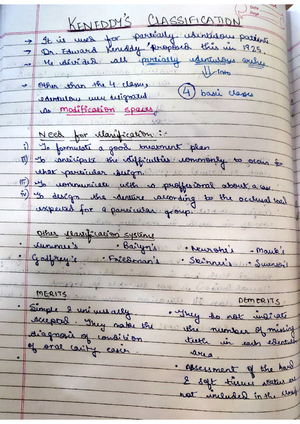 KENEDDY'S CLASSIFICATION
→ It is used for partially edentulous patients
→ Dr. Edward Keneddy proposed this in 1925.
→ He divided all partially edentulous arches
into
→ Other than the 4 classes
4 basic classes
edentulous were designated
as Modification spaces
Need for classification :-
i) To formulate a good treatment plan
ii) To anticipate the difficulties commonly to occur for
that particular design.
iii) To communicate with a proffesional about a case
iv) To design the denture according to the occlusal load
expected for a particular group.
Other classification systems
• Cummer's • Bailyn's • Neurohr's • Mauk's
• Godfrey's • Friedman's • Skinner's • Swenson's
MERITS
DEMERITS
• Simple & universally
accepted. They make the
diagnosis of condition
of oral cavity easier.
• They do not indicate
the number of missing
teeth in each edentulous
area
• assessment of the hard
& soft tissues status is
not included in the